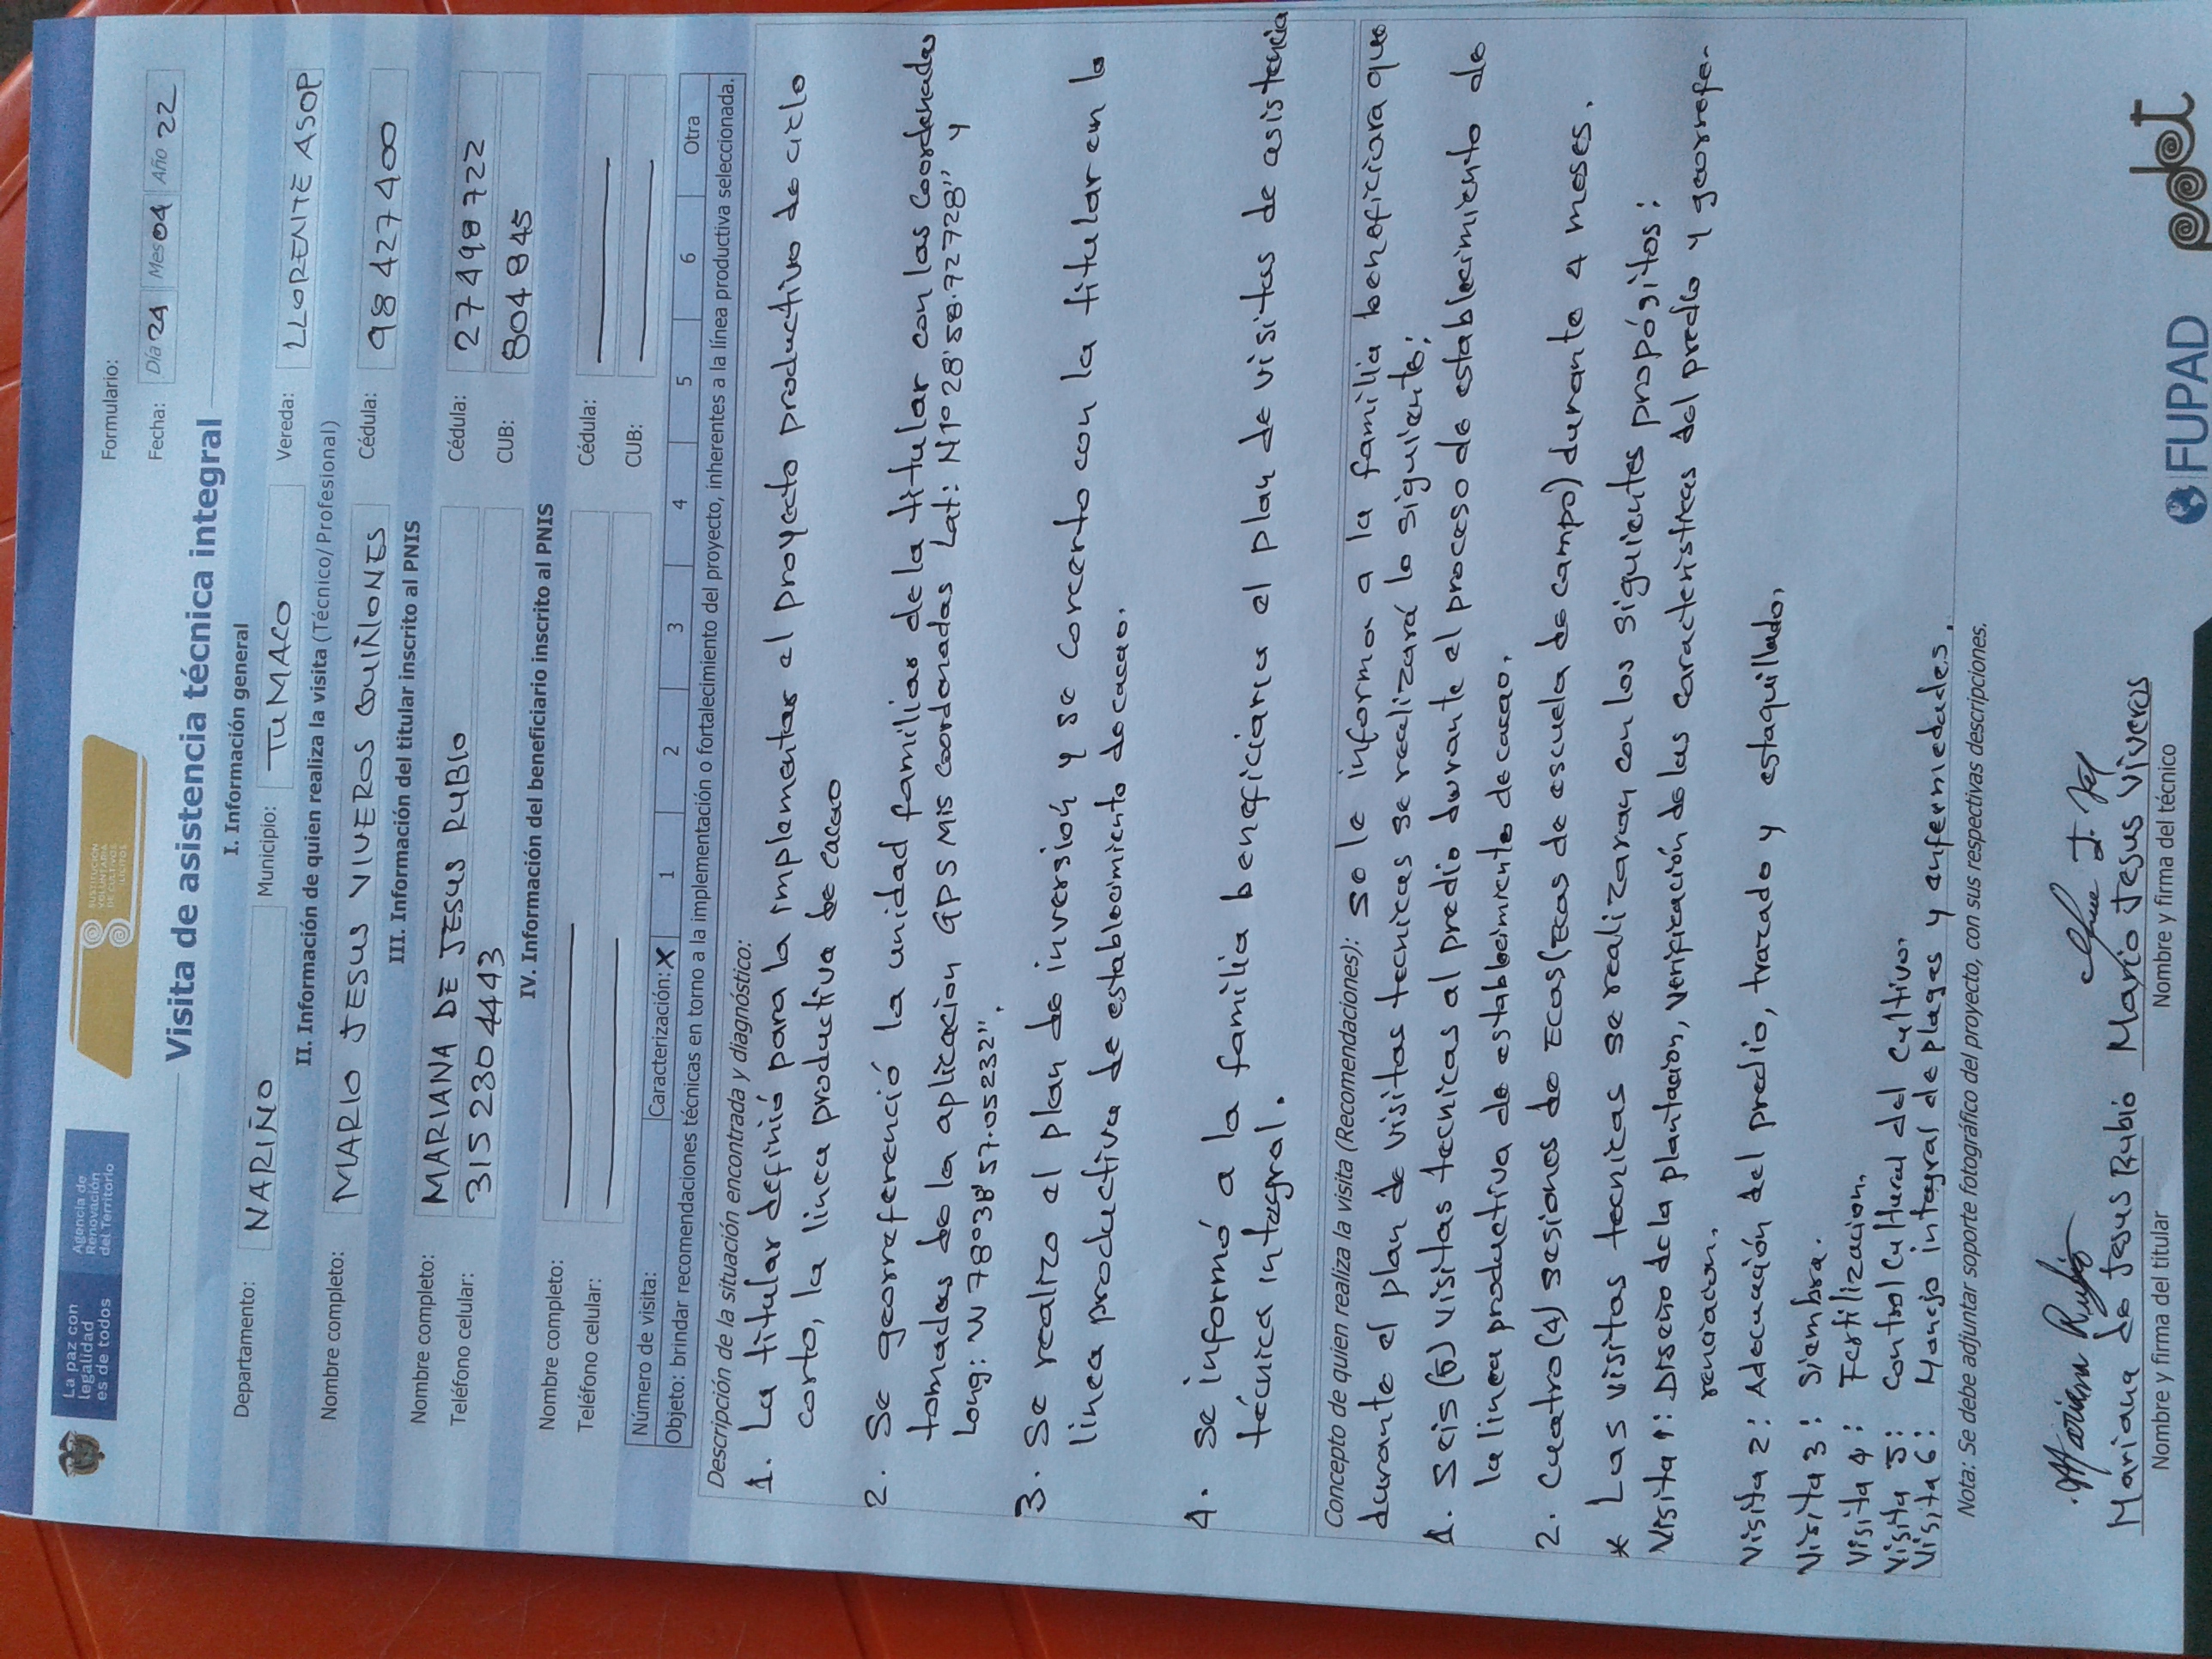 La paz con
legalidad
es de todos
Agencia de
Renovación
del Territorio
SUSTITUCIÓN
VOLUNTARIA
DE CULTIVOS
ILÍCITOS
Formulario:
Fecha: Día 24 Mes 04 Año 22
Visita de asistencia técnica integral
I. Información general
Departamento: NARIÑO Municipio: TUMACO Vereda: LLORENTE ASOP
II. Información de quien realiza la visita (Técnico/Profesional)
Nombre completo: MARIO JESUS VIVEROS QUIÑONES Cédula: 98427400
III. Información del titular inscrito al PNIS
Nombre completo: MARIANA DE JESUS RUBIO Cédula: 27498722
Teléfono celular: 3152304443 CUB: 804845
IV. Información del beneficiario inscrito al PNIS
Nombre completo: Cédula:
Teléfono celular: CUB:
Número de visita: Caracterización: X 1 2 3 4 5 6 Otra
Objeto: brindar recomendaciones técnicas en torno a la implementación o fortalecimiento del proyecto, inherentes a la línea productiva seleccionada.
Descripción de la situación encontrada y diagnóstico:
1. La titular definió para la implementar el proyecto productivo de ciclo
corto, la linea productiva de cacao
2. Se georreferenció la unidad familiar de la titular con las coordenadas
tomadas de la aplicacion GPS Mis coordenadas Lat: N 1° 28' 58.72728" y
Long: W 78° 38' 57.05232".
3. Se realizo el plan de inversión y se corcerto con la titular em la
linea productiva de establecimiento de cacao.
4. Se informó a la familia beneficiaria el plan de visitas de asistencia
técnica integral.
Concepto de quien realiza la visita (Recomendaciones): se le informa a la familia beneficiara que
durante el plan de visitas tecnicas se realizará lo siguiente;
1. Seis (6) visitas tecnicas al predio durante el proceso de establecimiento de
la linea productiva de establecimiento de cacao.
2. Cuatro (4) sesiones de Ecas (Ecas de escuela de campo) durante 4 meses.
* Las visitas tecnicas se realizaran con los siguientes propógitos:
Visita 1: Diseño de la plantacion, verificación de las caracteristicas del predio y georrefe-
renciacion.
Visita 2: Adecuación del predio, trazado y estaquillado,
Visita 3: Siembra.
Visita 4: Fertilizacion.
Visita 5: Control Cultural del Cultivo.
Visita 6: Manejo integral de plagas y enfermedades.
Nota: Se debe adjuntar soporte fotográfico del proyecto, con sus respectivas descripciones.
Mariana Rubio
Mariana de Jesus Rubio Mario Jesus Viveros
Nombre y firma del titular Nombre y firma del técnico
FUPAD pdet